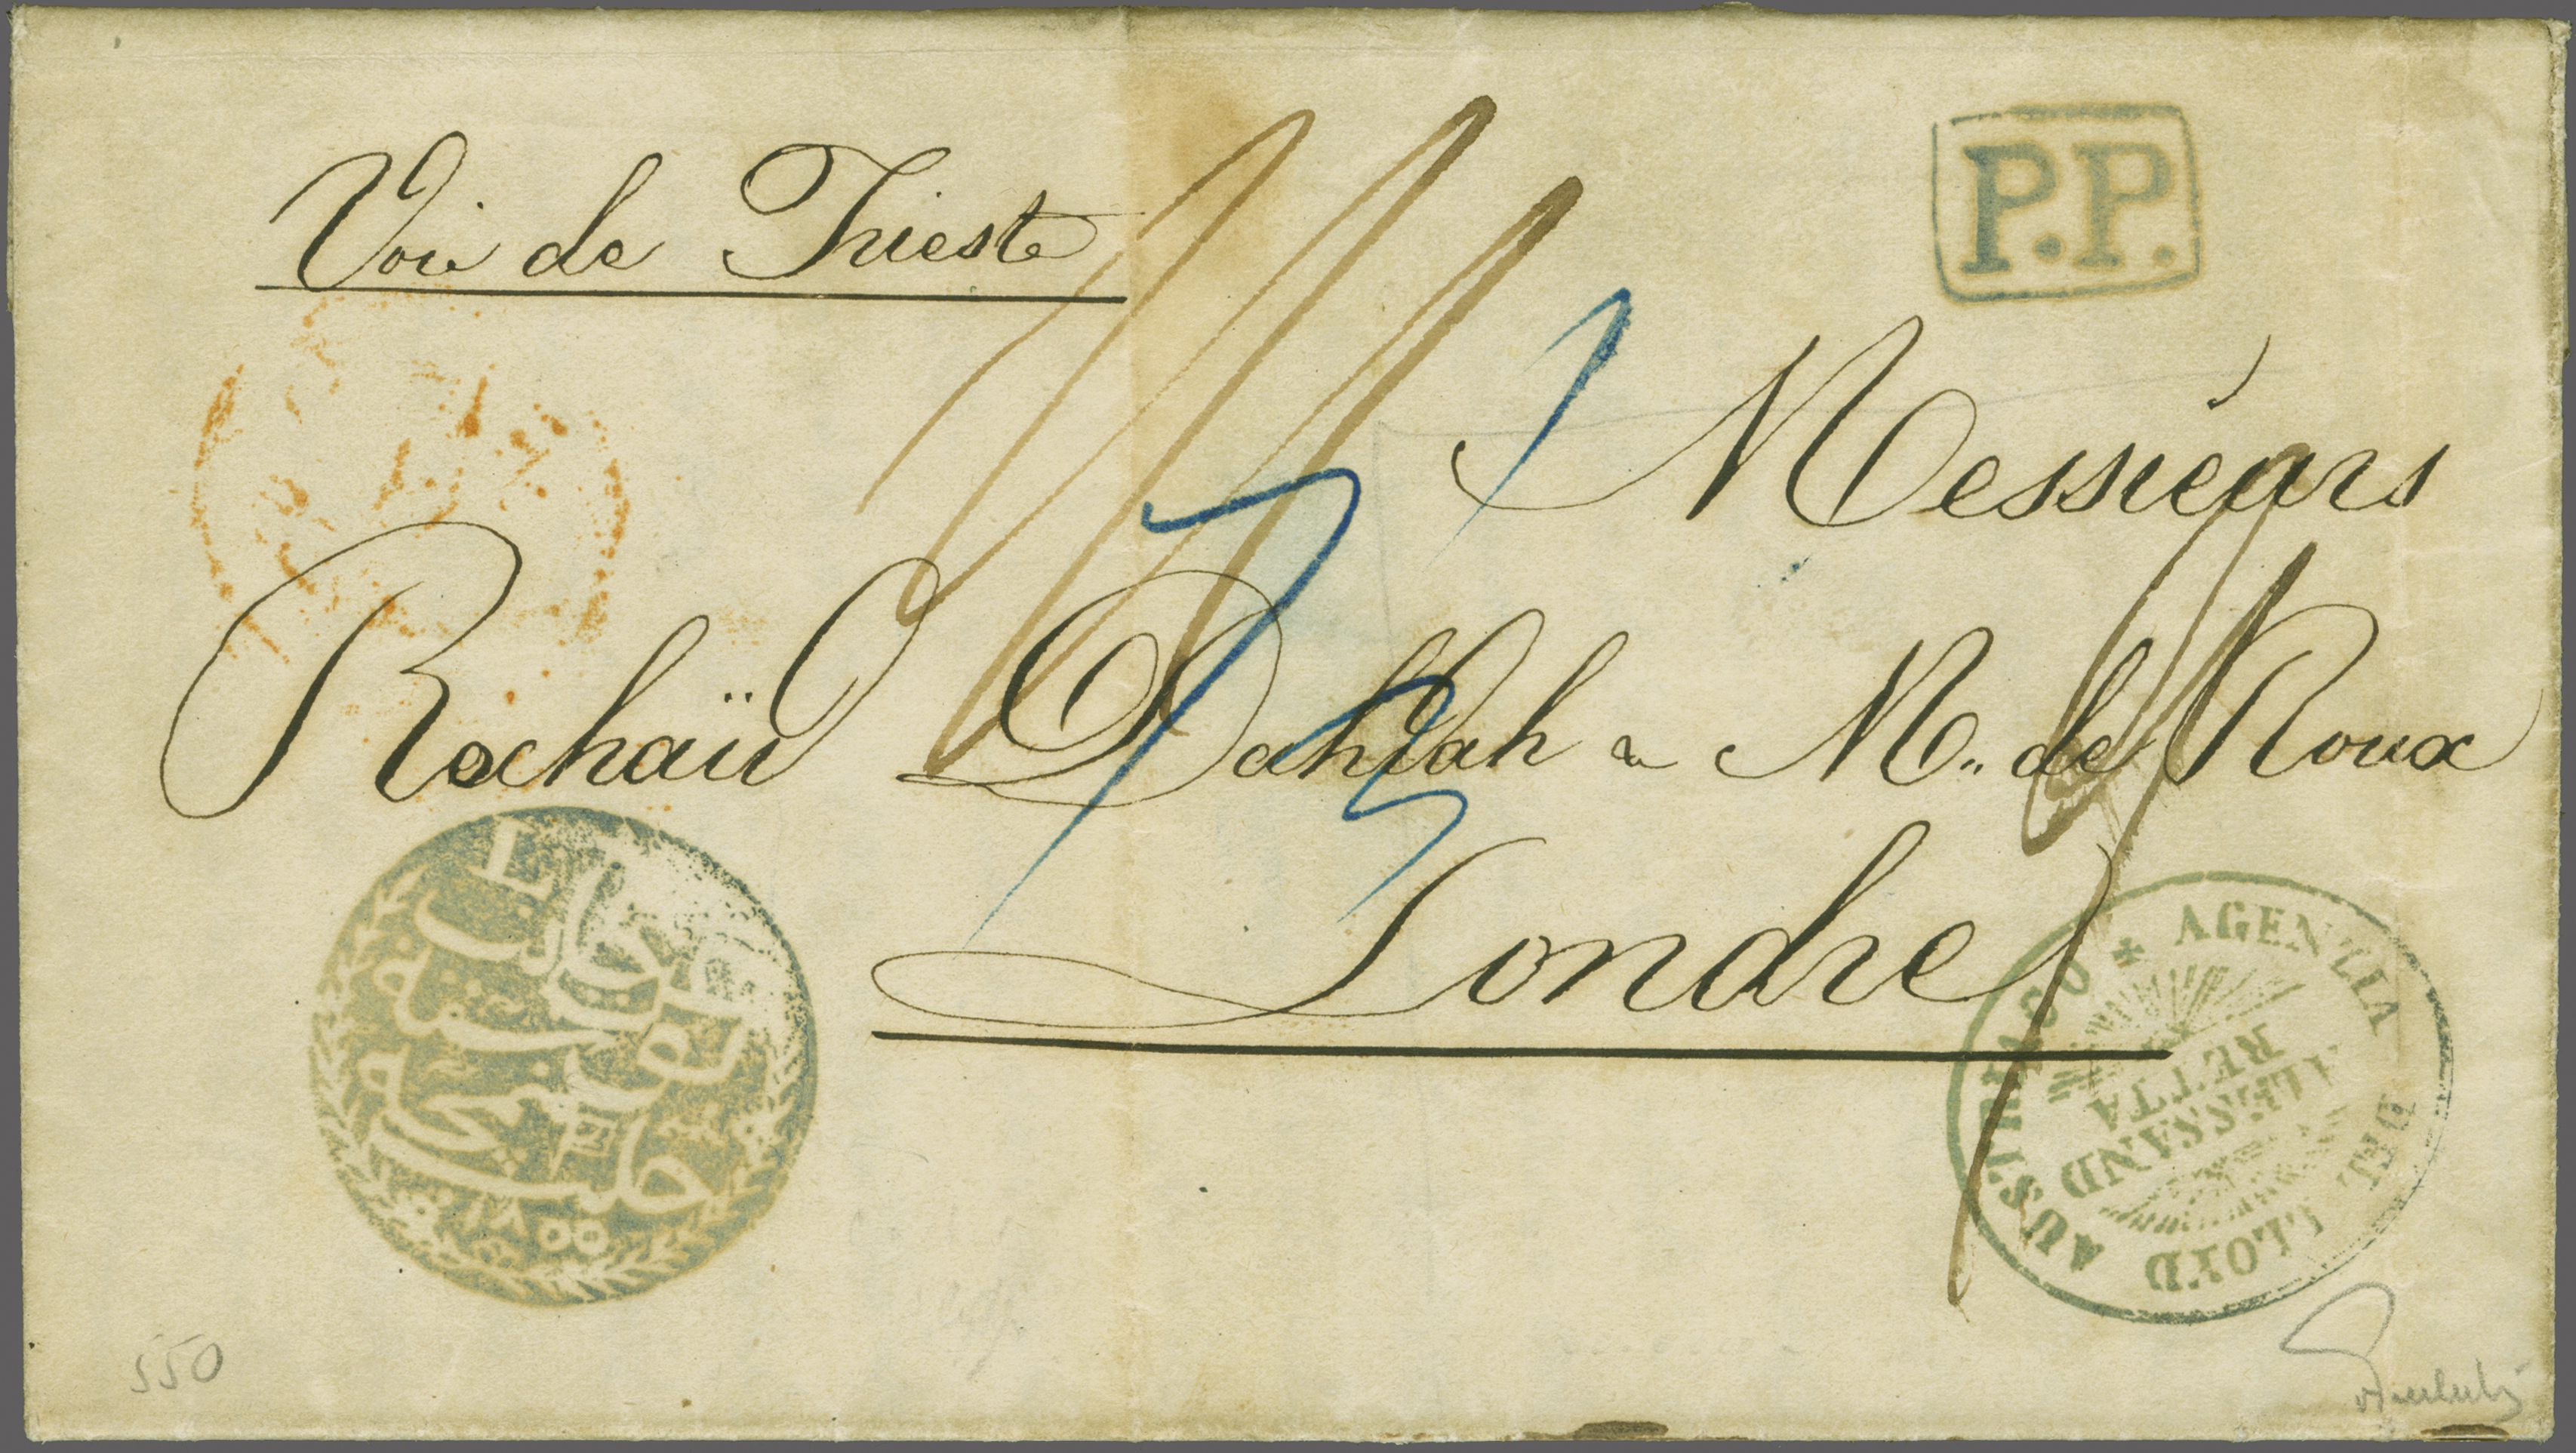 Voie de Trieste
P.P.
Messieurs
Rochaïd Dahdah & M.. de Roux
Londres
١٢٥٥
AGENZIA DEL LLOYD AUSTRIACO
ALESSAND
RETTA
550